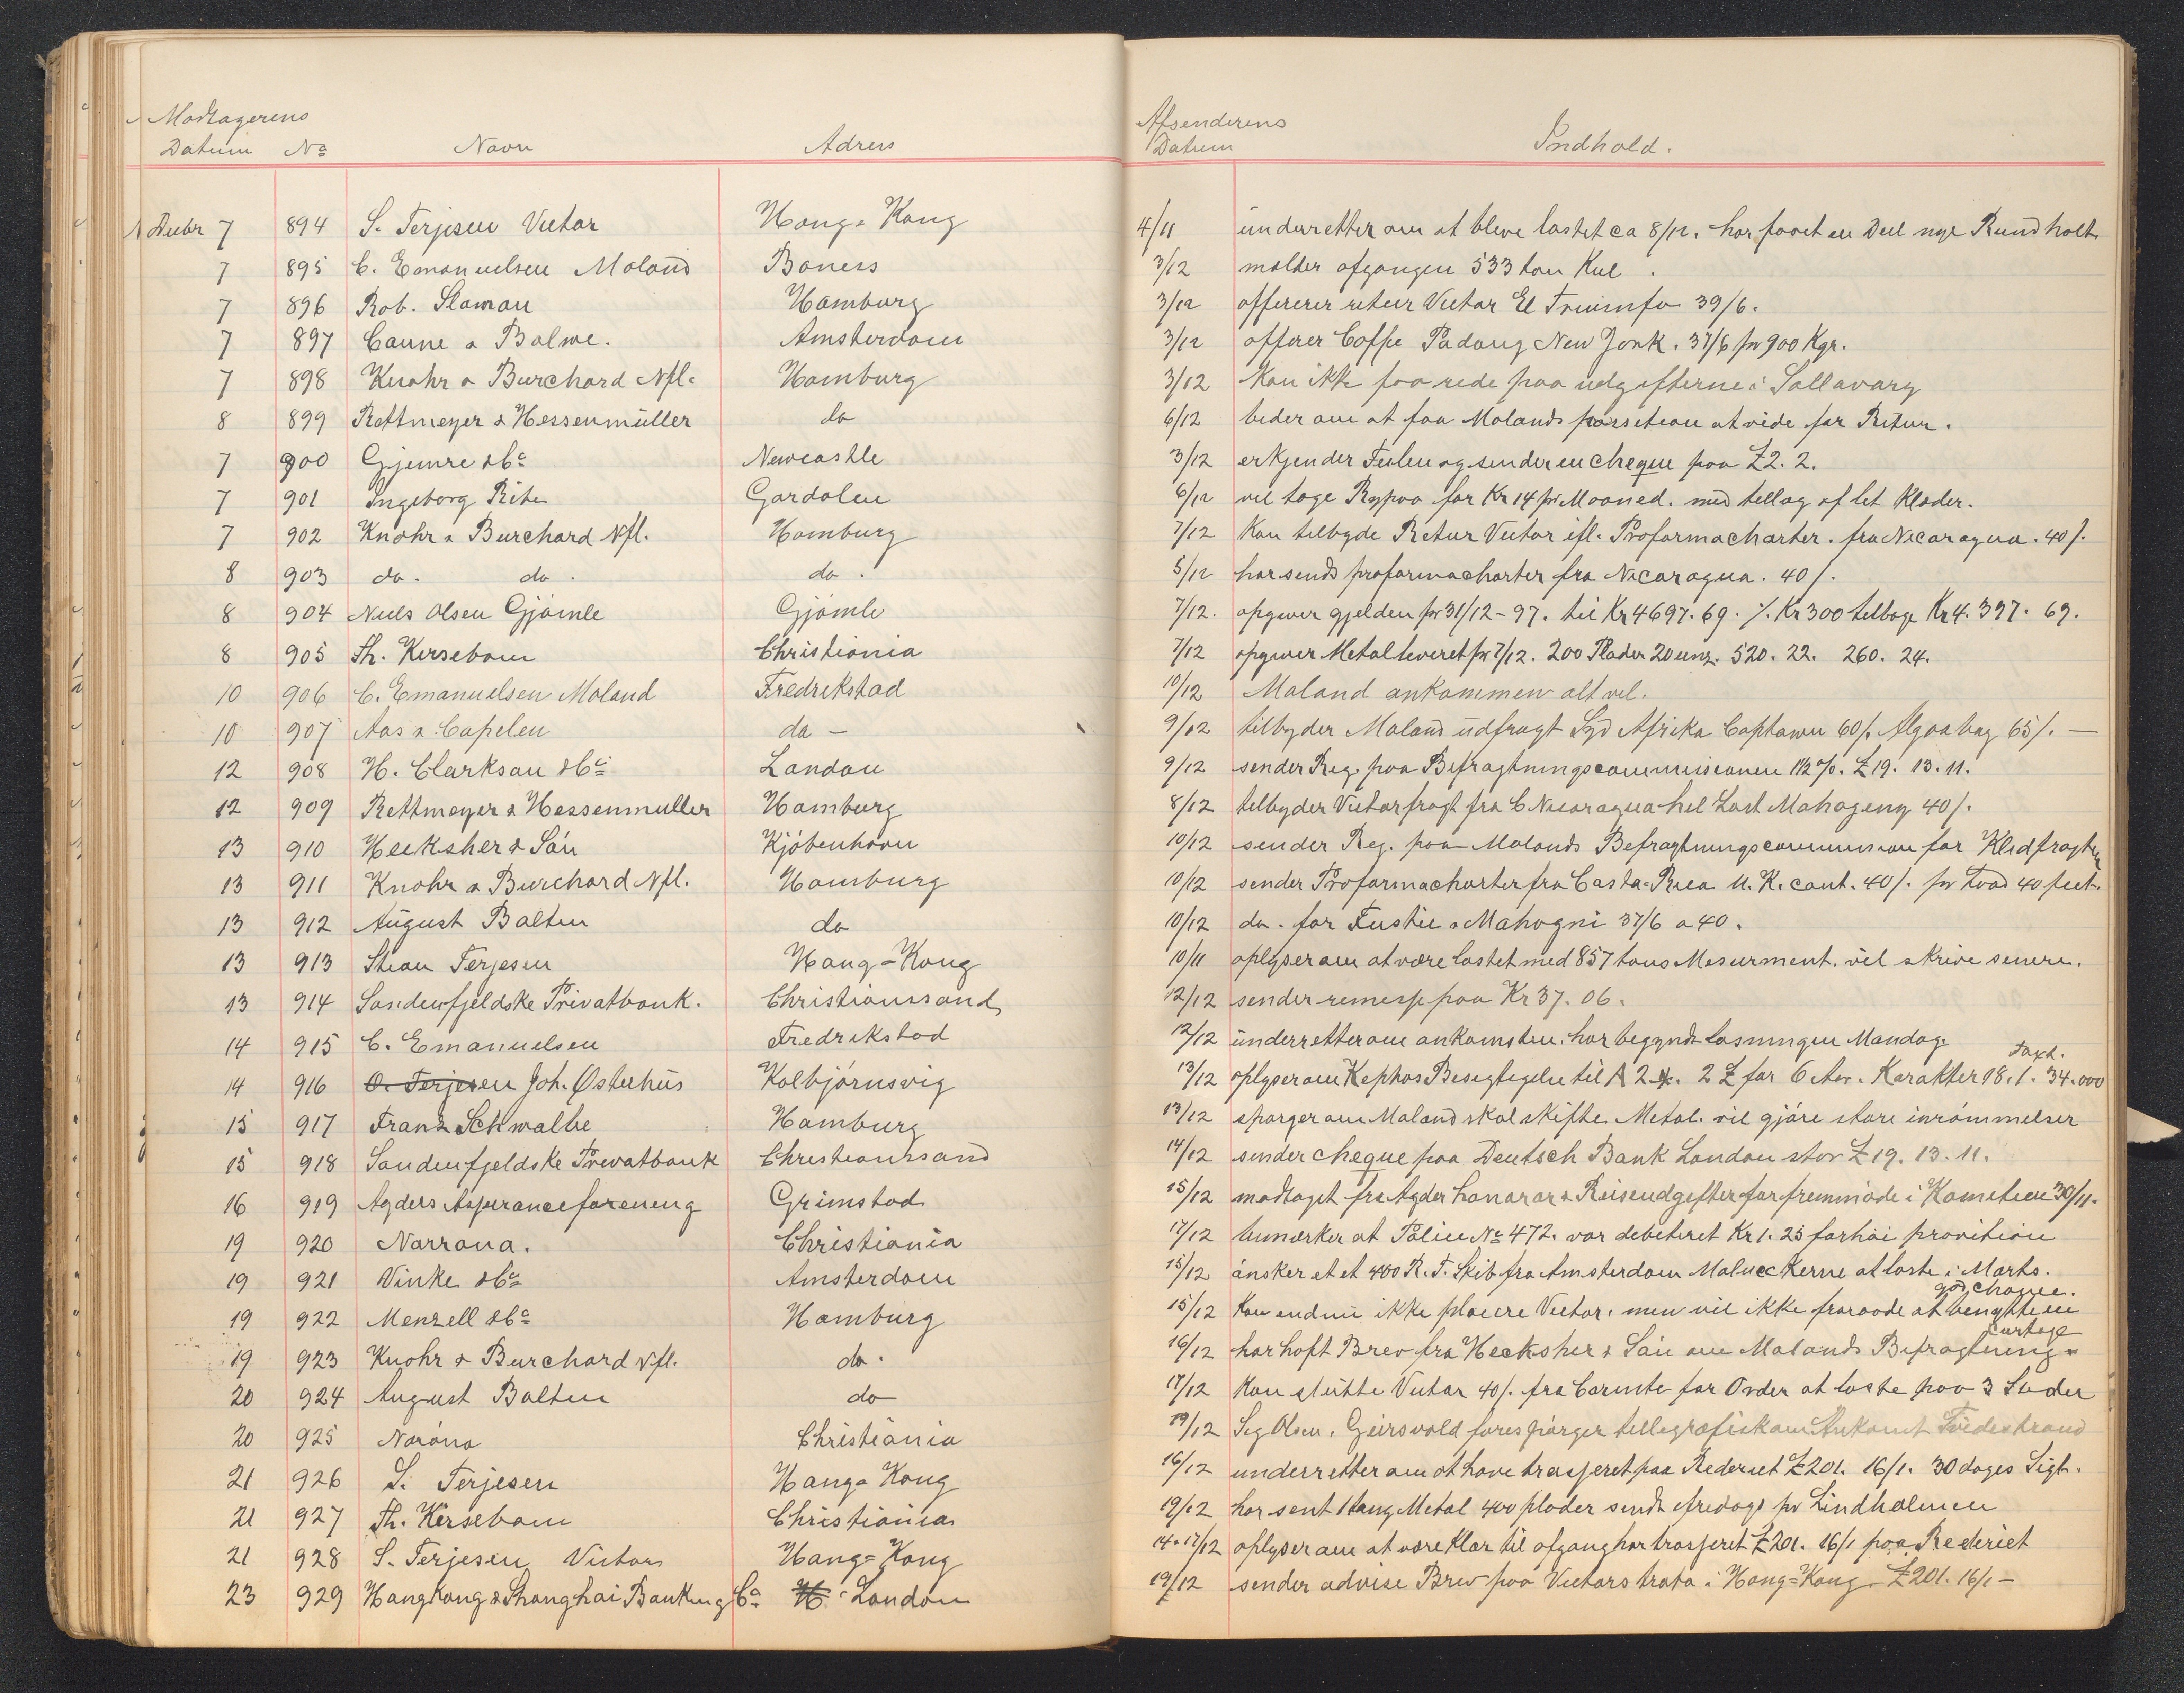 Modtagerens
Datum No Navn Adress
Decbr 7 894 S. Terjesen Victor Hong-Kong
7 895 C. Emanuelsen Moland Boness
7 896 Rob. Sloman Hamburg
7 897 Canne & Balwe. Amsterdam
7 898 Knohr & Burchard Nfl. Hamburg
8 899 Rettmeyer & Hessenmüller do
7 900 Gjemre & Co Newcastle
7 901 Ingeborg Gardalen
7 902 Knohr & Burchard Nfl. Hamburg
8 903 do. do. do.
8 904 Niels Olsen Gjömle Gjömle
8 905 Th. Kersebom Christiania
10 906 C. Emanuelsen Moland Fredrikstad
10 907 Aas & Capelen do -
12 908 H. Clarkson & Co London
12 909 Rettmeyer & Hessenmuller Hamburg
13 910 Hecksher & Sön Kjöbenhavn
13 911 Knohr & Burchard Nfl. Hamburg
13 912 August Bolten do
13 913 Stian Terjesen Hong-Kong
13 914 Søndenfjeldske Privatbank. Christianssand
14 915 C. Emanuelsen Fredrikstad
14 916 O. Terjesen Joh. Østerhüs Kolbjörnsvig
15 917 Franz Schwalbe Hamburg
15 918 Søndenfjeldske Privatbank Christianssand
16 919 Agders Assuranceforening Grimstad
19 920 Norrøna. Christiania
19 921 Vinke & Co Amsterdam
19 922 Menzell & Co Hamburg
19 923 Knohr & Burchard Nfl. do.
20 924 August Bolten do
20 925 Noröna Christiania
21 926 S. Terjesen Hong-Kong
21 927 Th. Kersebom Christiania
21 928 S. Terjesen Victor Hong-Kong
23 929 HongKong & Shanghai Banking Co London
Afsenderens
Datum Indhold.
4/11 underretter om at blive lastet ca 8/12. har faaet en Deel nye Rundholt
3/12 melder afgangen 533 ton Kul.
3/12 offererer retur Victor El Triumfo 39/6.
3/12 offerer Coffe Padang New York. 37/6 pr 900 Kgr.
3/12 Kan ikke faa rede paa udgifterne i Sallavary
6/12 beder om at faa Molands at vide for Retur.
3/12 erkjender Feilen og sender en cheque paa £2. 2.
6/12 vil tage for Kr 14 pr Maaned. med tillæg af let Klæder.
7/12 Kan tilbyde Retur Victor ifl. Proformacharter. fra Nicaragua. 40/.
5/12 har sendt proformacharter fra Nicaragua. 40/.
7/12. opgiver gjelden pr 31/12-97. til Kr 4697. 69. ./. Kr 300 tilbage Kr 4.397. 69.
7/12 opgiver Metal leveret pr 7/12. 200 Plader 20 unz. 520. 22. 260. 24.
10/12 Moland ankommen alt vel.
9/12 tilbyder Moland udfragt Syd Afrika Captown 60/. Algoabay 65/. —
9/12 sender Reg. paa Befragtningscommissionen 1 1/2 %. £19. 13. 11.
8/12 tilbyder Victor fragt fra C Nicaragua hel Last Mahogeny 40/.
10/12 sender Reg. paa Molands Befragtningscommission for Klidfragten
10/12 sender Proformacharter fra Costa-Rica U. K. cont. 40/. pr Load 40 feet.
10/12 do. for Fustic & Mahogni 37/6 a 40.
10/11 oplyser om at være lastet med 857 tons Mesurment. vil skrive senere.
12/12 sender remesse paa Kr 37. 06.
12/12 underretter om ankomsten. har begyndt losningen Mandag.
13/12 oplyser om Kephos Besigtigelse til A 2. 2 Z for 6 Aar. Karakter 98. 1. Taxt. 34.000
13/12 spørger om Moland skal skifte Metal. vil gjöre store inrömmelser
14/12 sender cheque paa Deutsch Bank London stor £19. 13. 11.
15/12 modtaget fra Agder honorar & Reiseudgifter for fremmöde i Komiteen 30/11.
17/12 bemerker at Police No 472. var debiteret Kr 1. 25 forhöi provition
15/12 önsker et et 400 R. T. Skib fra Amsterdam Moluckerne at laste i Marts.
15/12 Kan endnu ikke placere Victor. men vil ikke fraraade at benytte en god chance.
16/12 har haft Brev fra Hecksher & Sön om Molands Befragtnings- curtage
17/12 Kan slutte Victor 40/. fra Carmte for Order at laste paa 3 Steder
19/12 Sig Olsen, Geirsvold forespörger tellegrafisk om Ankomst Tvedestrand
16/12 underretter om at have trasseret paa Rederiet £201. 16/1. 30 dages Sigt.
19/12 har sent Metal 400 plader sendt fredags pr Lindholmen
14-17/12 oplyser om at være klar til afgang har trasseret £201. 16/1 paa Rederiet
19/12 sender advise Brev paa Victors trata i Hong-Kong £201. 16/1 -